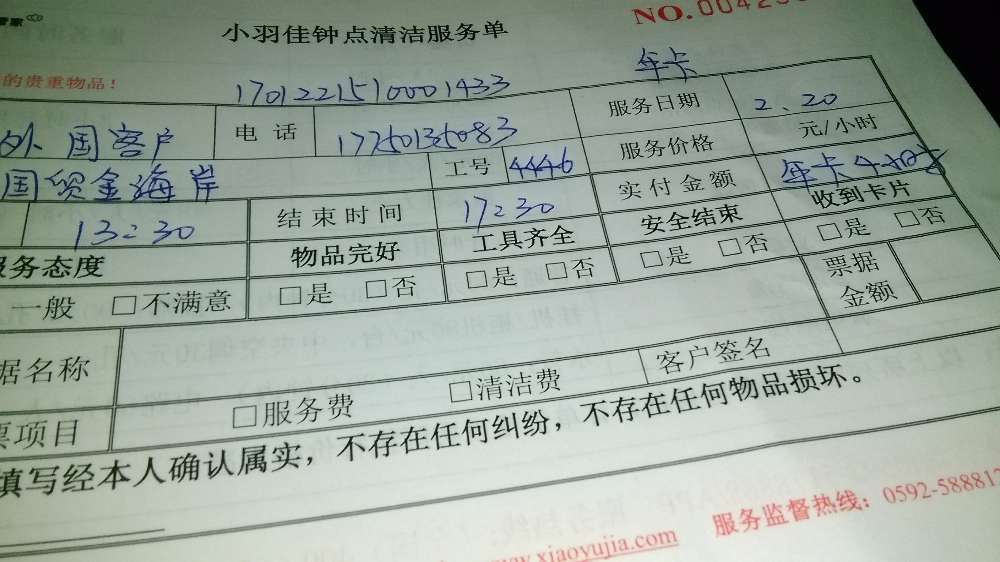 小羽佳钟点清洁服务单
NO.00425
的贵重物品！
17012215110001433
年卡
外国客户 电话 17750135083 服务日期 2.20
国贸金海岸 工号 4446 服务价格 元/小时
13:30 结束时间 17:30 实付金额 年卡4小时
服务态度 物品完好 工具齐全 安全结束 收到卡片
一般 □不满意 □是 □否 □是 □否 □是 □否 □是 □否 票据金额
据名称
票项目 □服务费 □清洁费 客户签名
填写经本人确认属实，不存在任何纠纷，不存在任何物品损坏。
服务监督热线：0592-588812
www.xiaoyujia.com